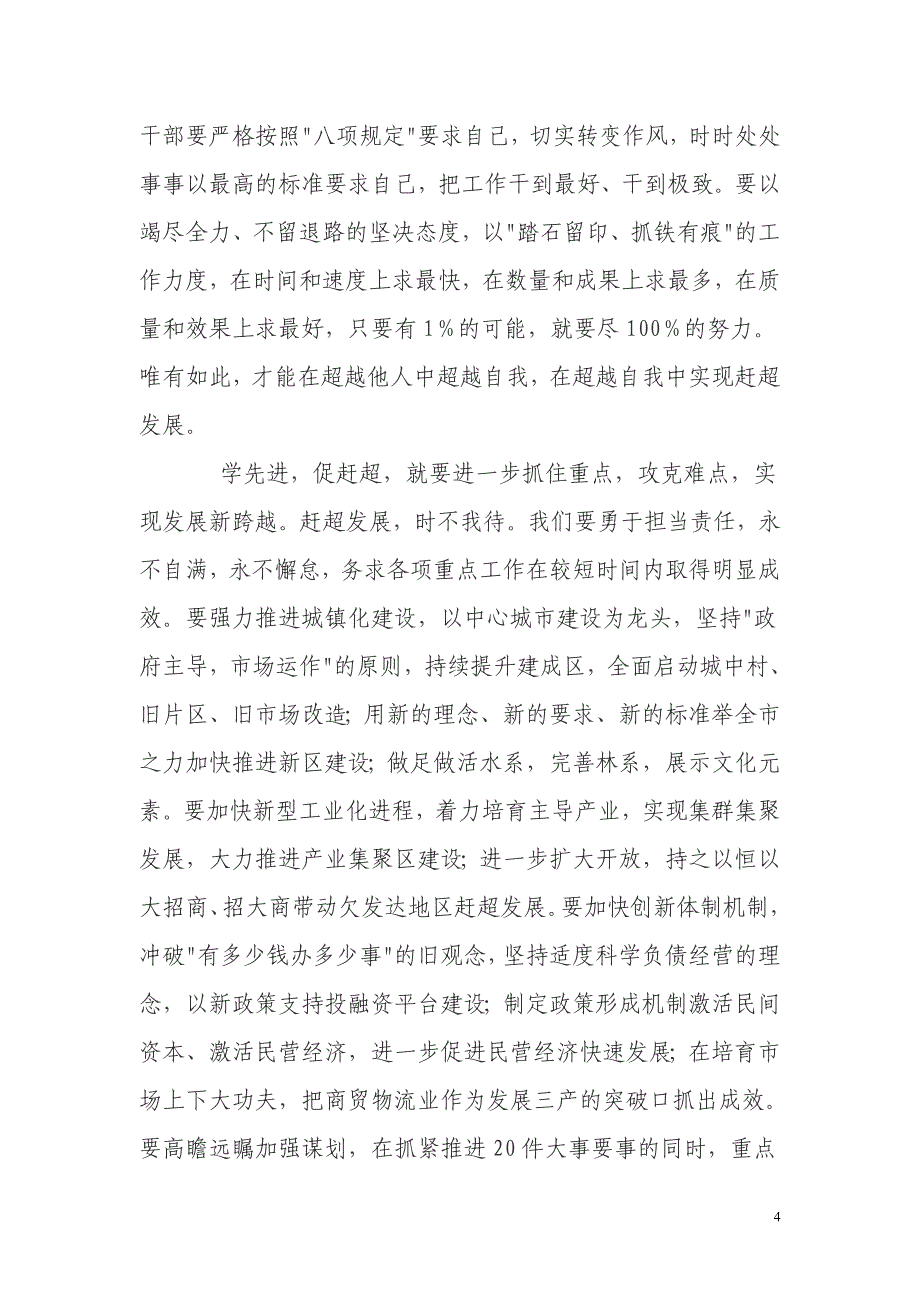 干部要严格按照"八项规定"要求自己，切实转变作风，时时处处
事事以最高的标准要求自己，把工作干到最好、干到极致。要以
竭尽全力、不留退路的坚决态度，以"踏石留印、抓铁有痕"的工
作力度，在时间和速度上求最快，在数量和成果上求最多，在质
量和效果上求最好，只要有1%的可能，就要尽100%的努力。
唯有如此，才能在超越他人中超越自我，在超越自我中实现赶超
发展。
学先进，促赶超，就要进一步抓住重点，攻克难点，实
现发展新跨越。赶超发展，时不我待。我们要勇于担当责任，永
不自满，永不懈怠，务求各项重点工作在较短时间内取得明显成
效。要强力推进城镇化建设，以中心城市建设为龙头，坚持"政
府主导，市场运作"的原则，持续提升建成区，全面启动城中村、
旧片区、旧市场改造；用新的理念、新的要求、新的标准举全市
之力加快推进新区建设；做足做活水系，完善林系，展示文化元
素。要加快新型工业化进程，着力培育主导产业，实现集群集聚
发展，大力推进产业集聚区建设；进一步扩大开放，持之以恒以
大招商、招大商带动欠发达地区赶超发展。要加快创新体制机制，
冲破"有多少钱办多少事"的旧观念，坚持适度科学负债经营的理
念，以新政策支持投融资平台建设；制定政策形成机制激活民间
资本、激活民营经济，进一步促进民营经济快速发展；在培育市
场上下大功夫，把商贸物流业作为发展三产的突破口抓出成效。
要高瞻远瞩加强谋划，在抓紧推进20件大事要事的同时，重点
4